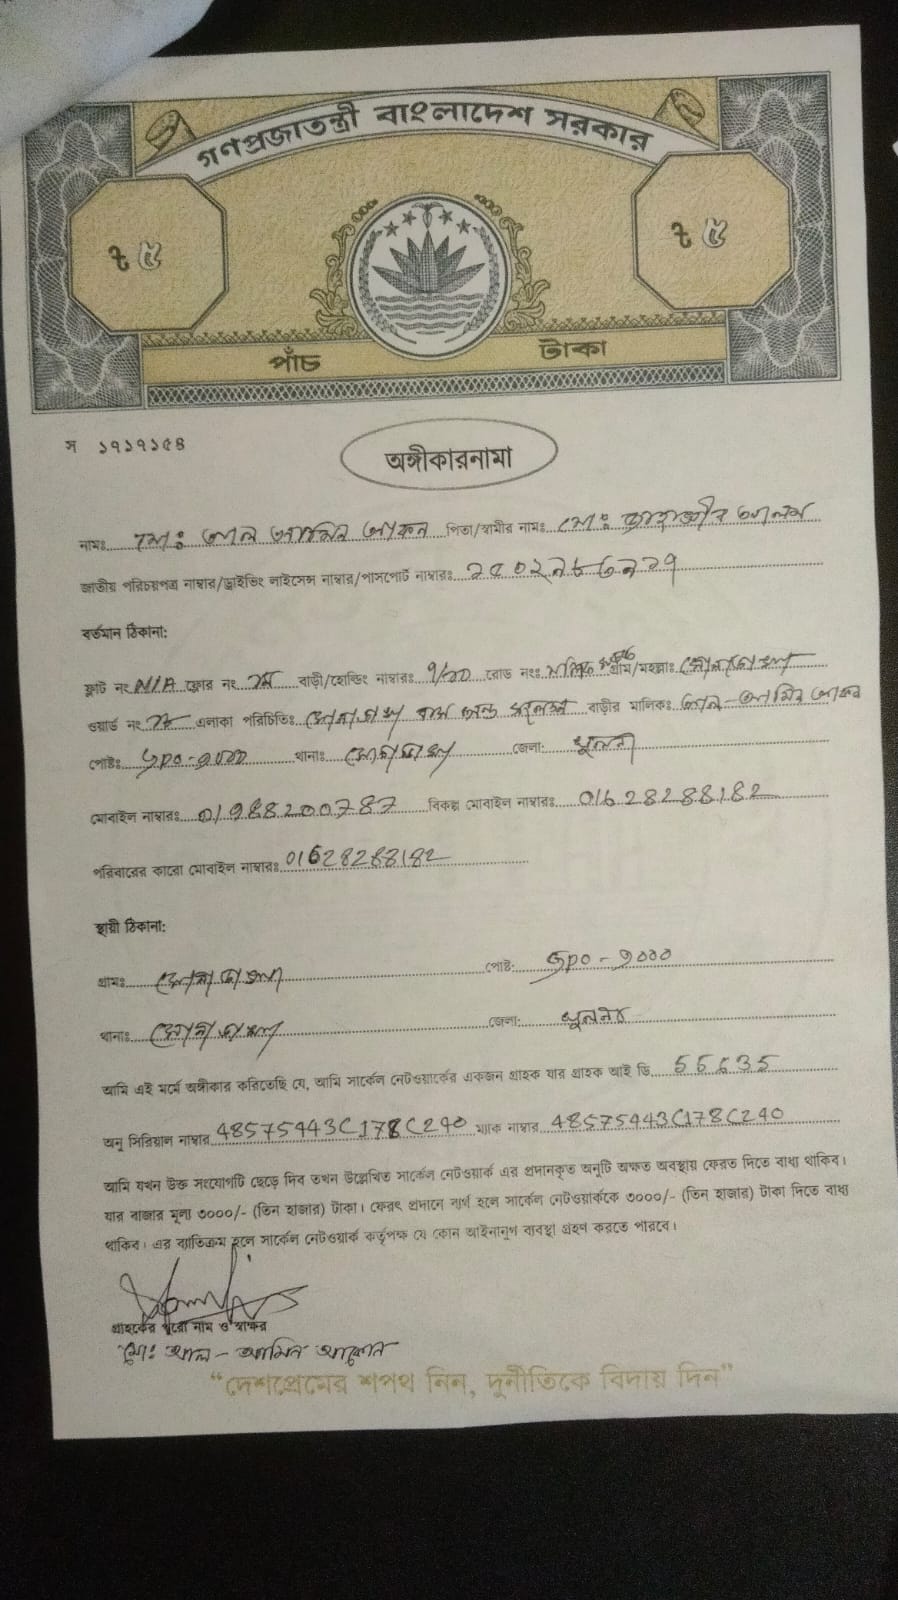 গণপ্রজাতন্ত্রী বাংলাদেশ সরকার
৳ ৫ ৳ ৫
পাঁচ টাকা
স ১৭১৭১৫৪
অঙ্গীকারনামা
নামঃ মোঃ আল আমিন আকন পিতা/স্বামীর নামঃ মোঃ জাহাঙ্গীর আলম
জাতীয় পরিচয়পত্র নাম্বার/ড্রাইভিং লাইসেন্স নাম্বার/পাসপোর্ট নাম্বারঃ
বর্তমান ঠিকানা:
ফ্লাট নং N/A ফ্লোর নং বাড়ী/হোল্ডিং নাম্বারঃ রোড নংঃ গ্রাম/মহল্লাঃ সোনাডাঙ্গা
ওয়ার্ড নং এলাকা পরিচিতিঃ সোনাডাঙ্গা বাস বাড়ীর মালিকঃ আল-আমিন আকন
পোষ্টঃ GPO-৯০০০ থানাঃ সোনাডাঙ্গা জেলা: খুলনা
মোবাইল নাম্বারঃ 01988200787 বিকল্প মোবাইল নাম্বারঃ 01628288182
পরিবারের কারো মোবাইল নাম্বারঃ 01628288182
স্থায়ী ঠিকানা:
গ্রামঃ সোনাডাঙ্গা পোষ্ট: GPO-৯০০০
থানাঃ সোনাডাঙ্গা জেলা: খুলনা
আমি এই মর্মে অঙ্গীকার করিতেছি যে, আমি সার্কেল নেটওয়ার্কের একজন গ্রাহক যার গ্রাহক আই ডি 55635
অনু সিরিয়াল নাম্বার 48575443C178C240 ম্যাক নাম্বার 48575443C178C240
আমি যখন উক্ত সংযোগটি ছেড়ে দিব তখন উল্লেখিত সার্কেল নেটওয়ার্ক এর প্রদানকৃত অনুটি অক্ষত অবস্থায় ফেরত দিতে বাধ্য থাকিব।
যার বাজার মূল্য ৩০০০/- (তিন হাজার) টাকা। ফেরৎ প্রদানে ব্যর্থ হলে সার্কেল নেটওয়ার্ককে ৩০০০/- (তিন হাজার) টাকা দিতে বাধ্য
থাকিব। এর ব্যতিক্রম হলে সার্কেল নেটওয়ার্ক কর্তৃপক্ষ যে কোন আইনানুগ ব্যবস্থা গ্রহণ করতে পারবে।
গ্রাহকের পুরো নাম ও স্বাক্ষর
মোঃ আল-আমিন আকোন
"দেশপ্রেমের শপথ নিন, দুর্নীতিকে বিদায় দিন"